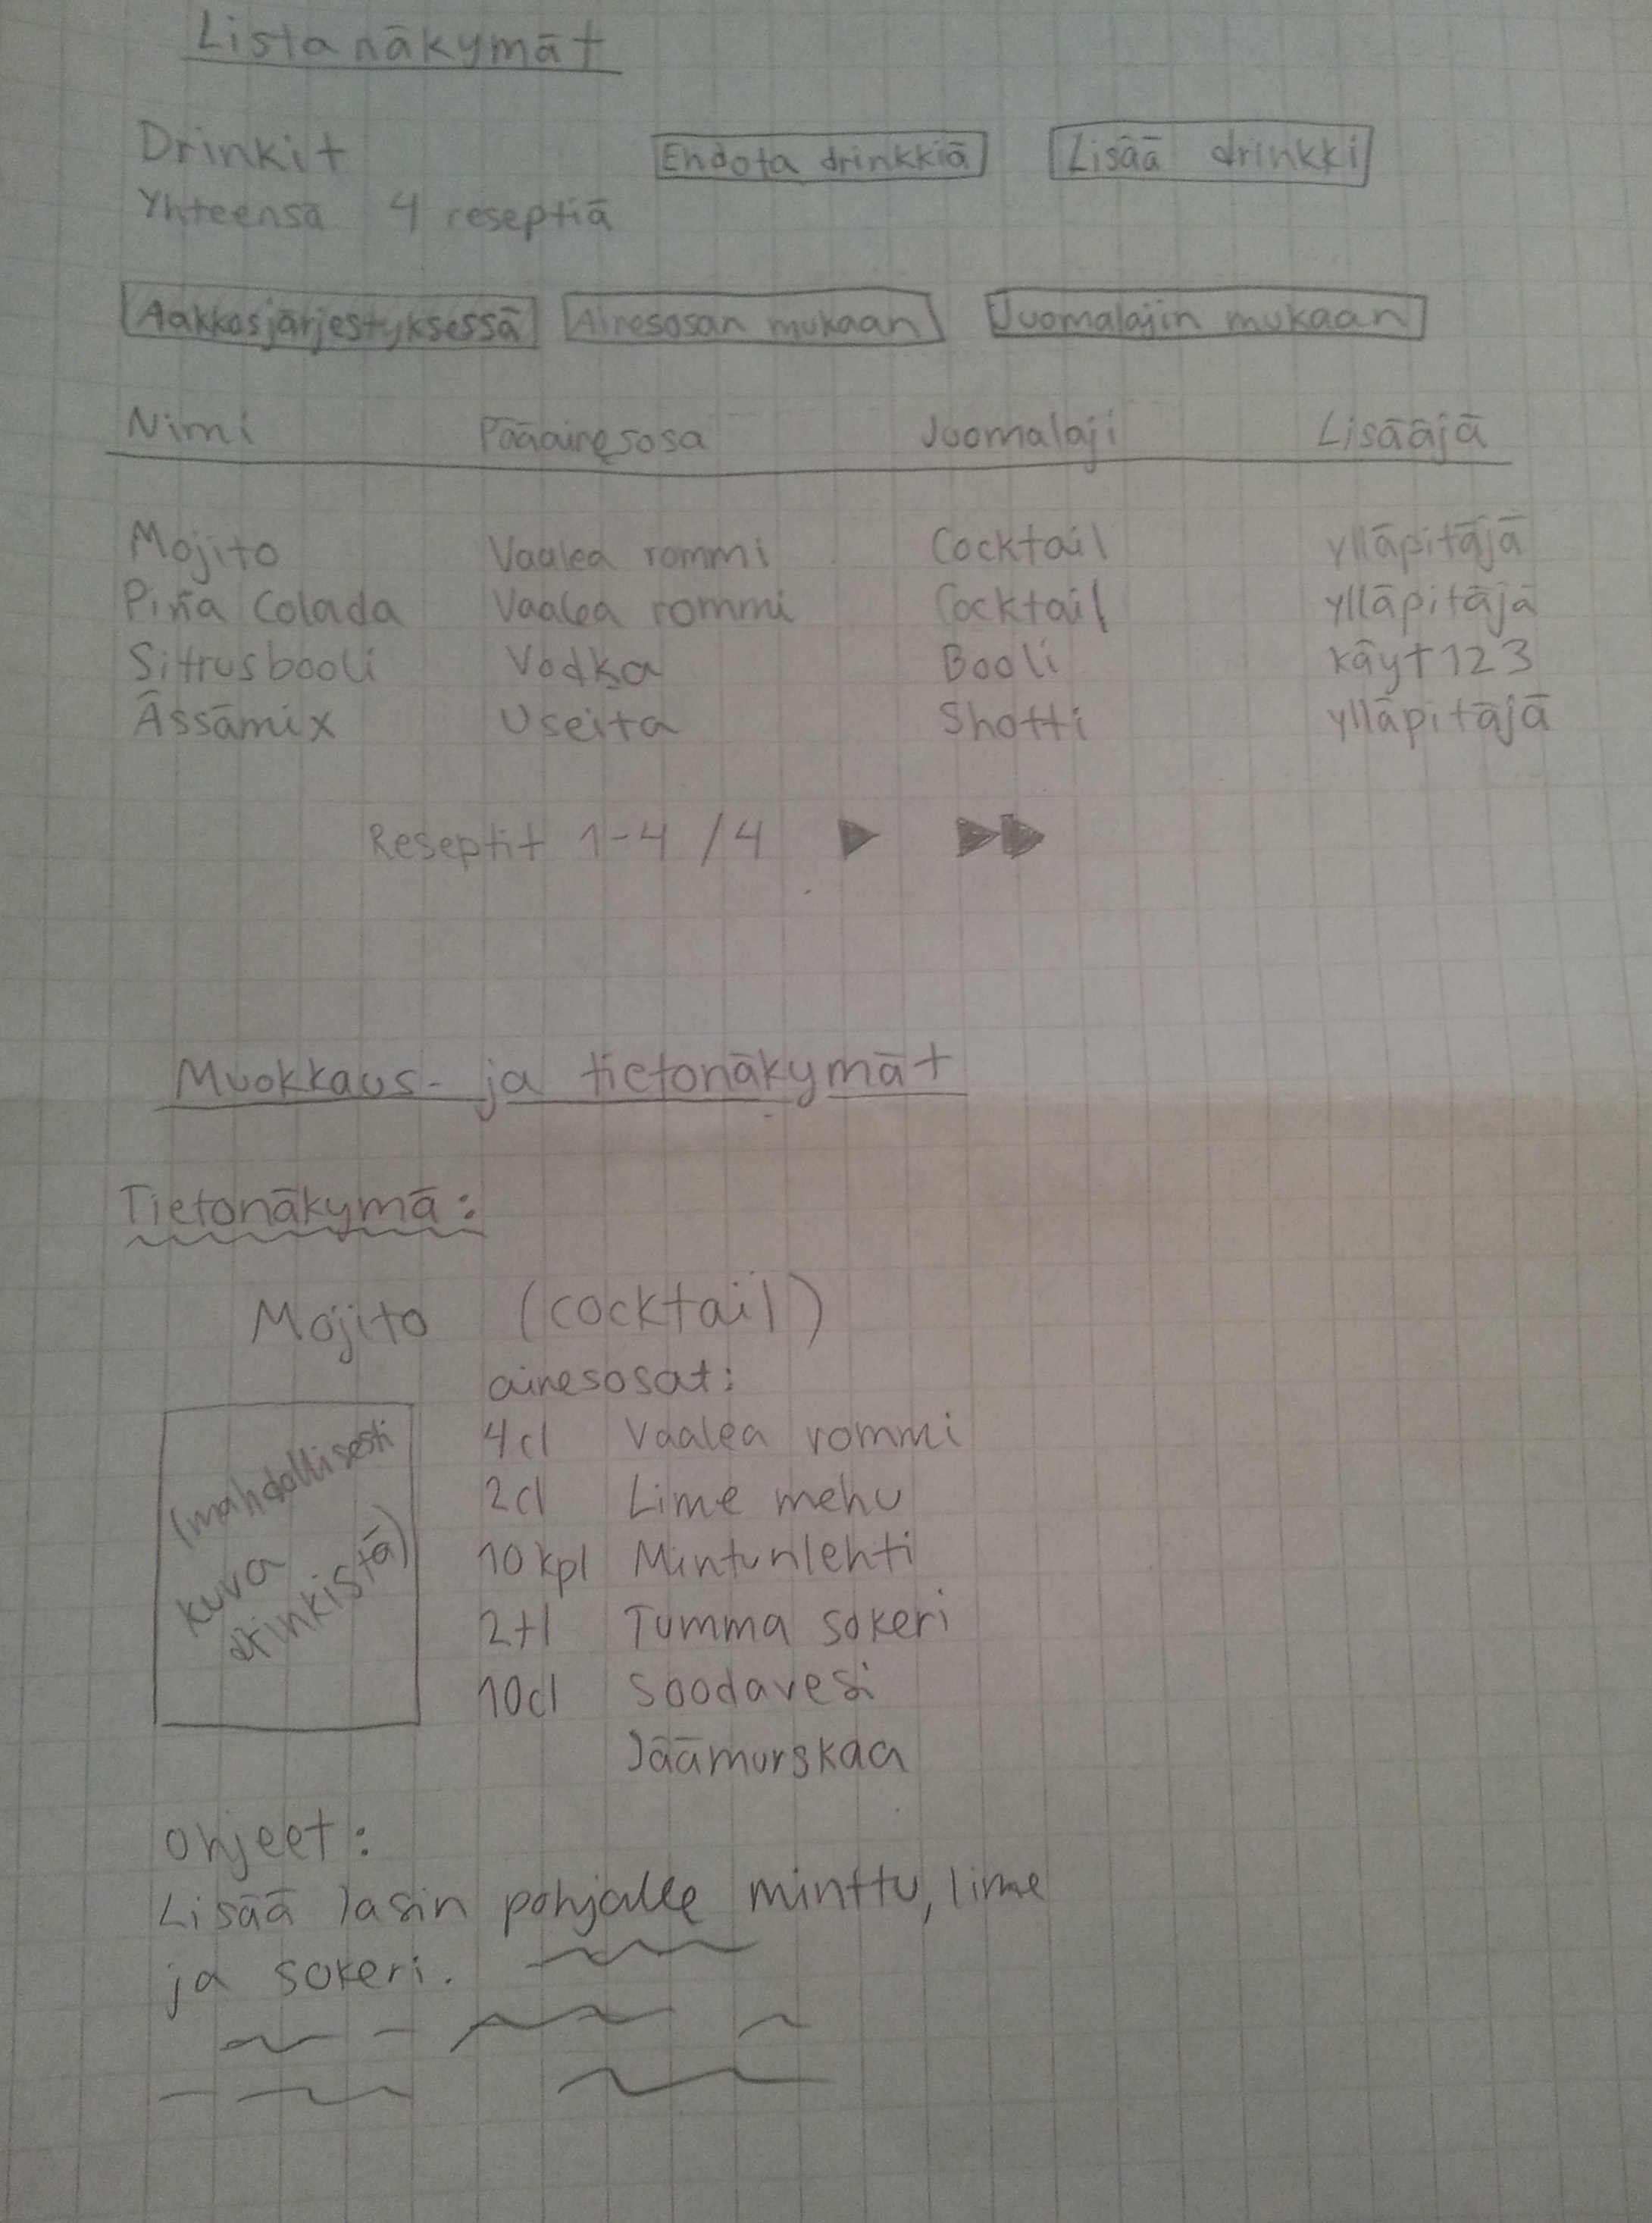 Listanäkymät
Drinkit Ehdota drinkkiä Lisää drinkki
Yhteensä 4 reseptiä
Aakkosjärjestyksessä Ainesosan mukaan Juomalajin mukaan
Nimi Pääainesosa Juomalaji Lisääjä
Mojito Vaalea rommi Cocktail ylläpitäjä
Piña Colada Vaalea rommi Cocktail ylläpitäjä
Sitrusbooli Vodka Booli käyt123
Ässämix Useita Shotti ylläpitäjä
Reseptit 1-4/4
Muokkaus- ja tietonäkymät
Tietonäkymä:
Mojito (cocktail)
ainesosat:
(mahdollisesti
kuva
drinkistä)
4cl Vaalea rommi
2cl Lime mehu
10kpl Mintunlehti
2tl Tumma sokeri
10cl Soodavesi
Jäämurskaa
Ohjeet:
Lisää lasin pohjalle minttu, lime
ja sokeri.